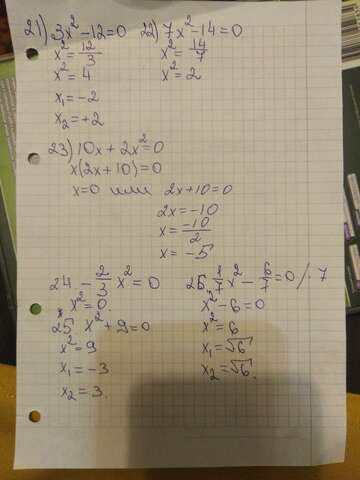 21) 3x²-12=0
x²=12/3
x²=4
x₁=-2
x₂=+2
22) 7x²-14=0
x²=14/7
x²=2
23) 10x+2x²=0
x(2x+10)=0
x=0 или 2x+10=0
2x=-10
x=-10/2
x=-5
24 -2/3 x²=0
x²=0
25 x²+9=0
x²=9
x₁=-3
x₂=3.
25 1/7 x²-6/7=0/·7
x²-6=0
x²=6
x₁=√6
x₂=√6.